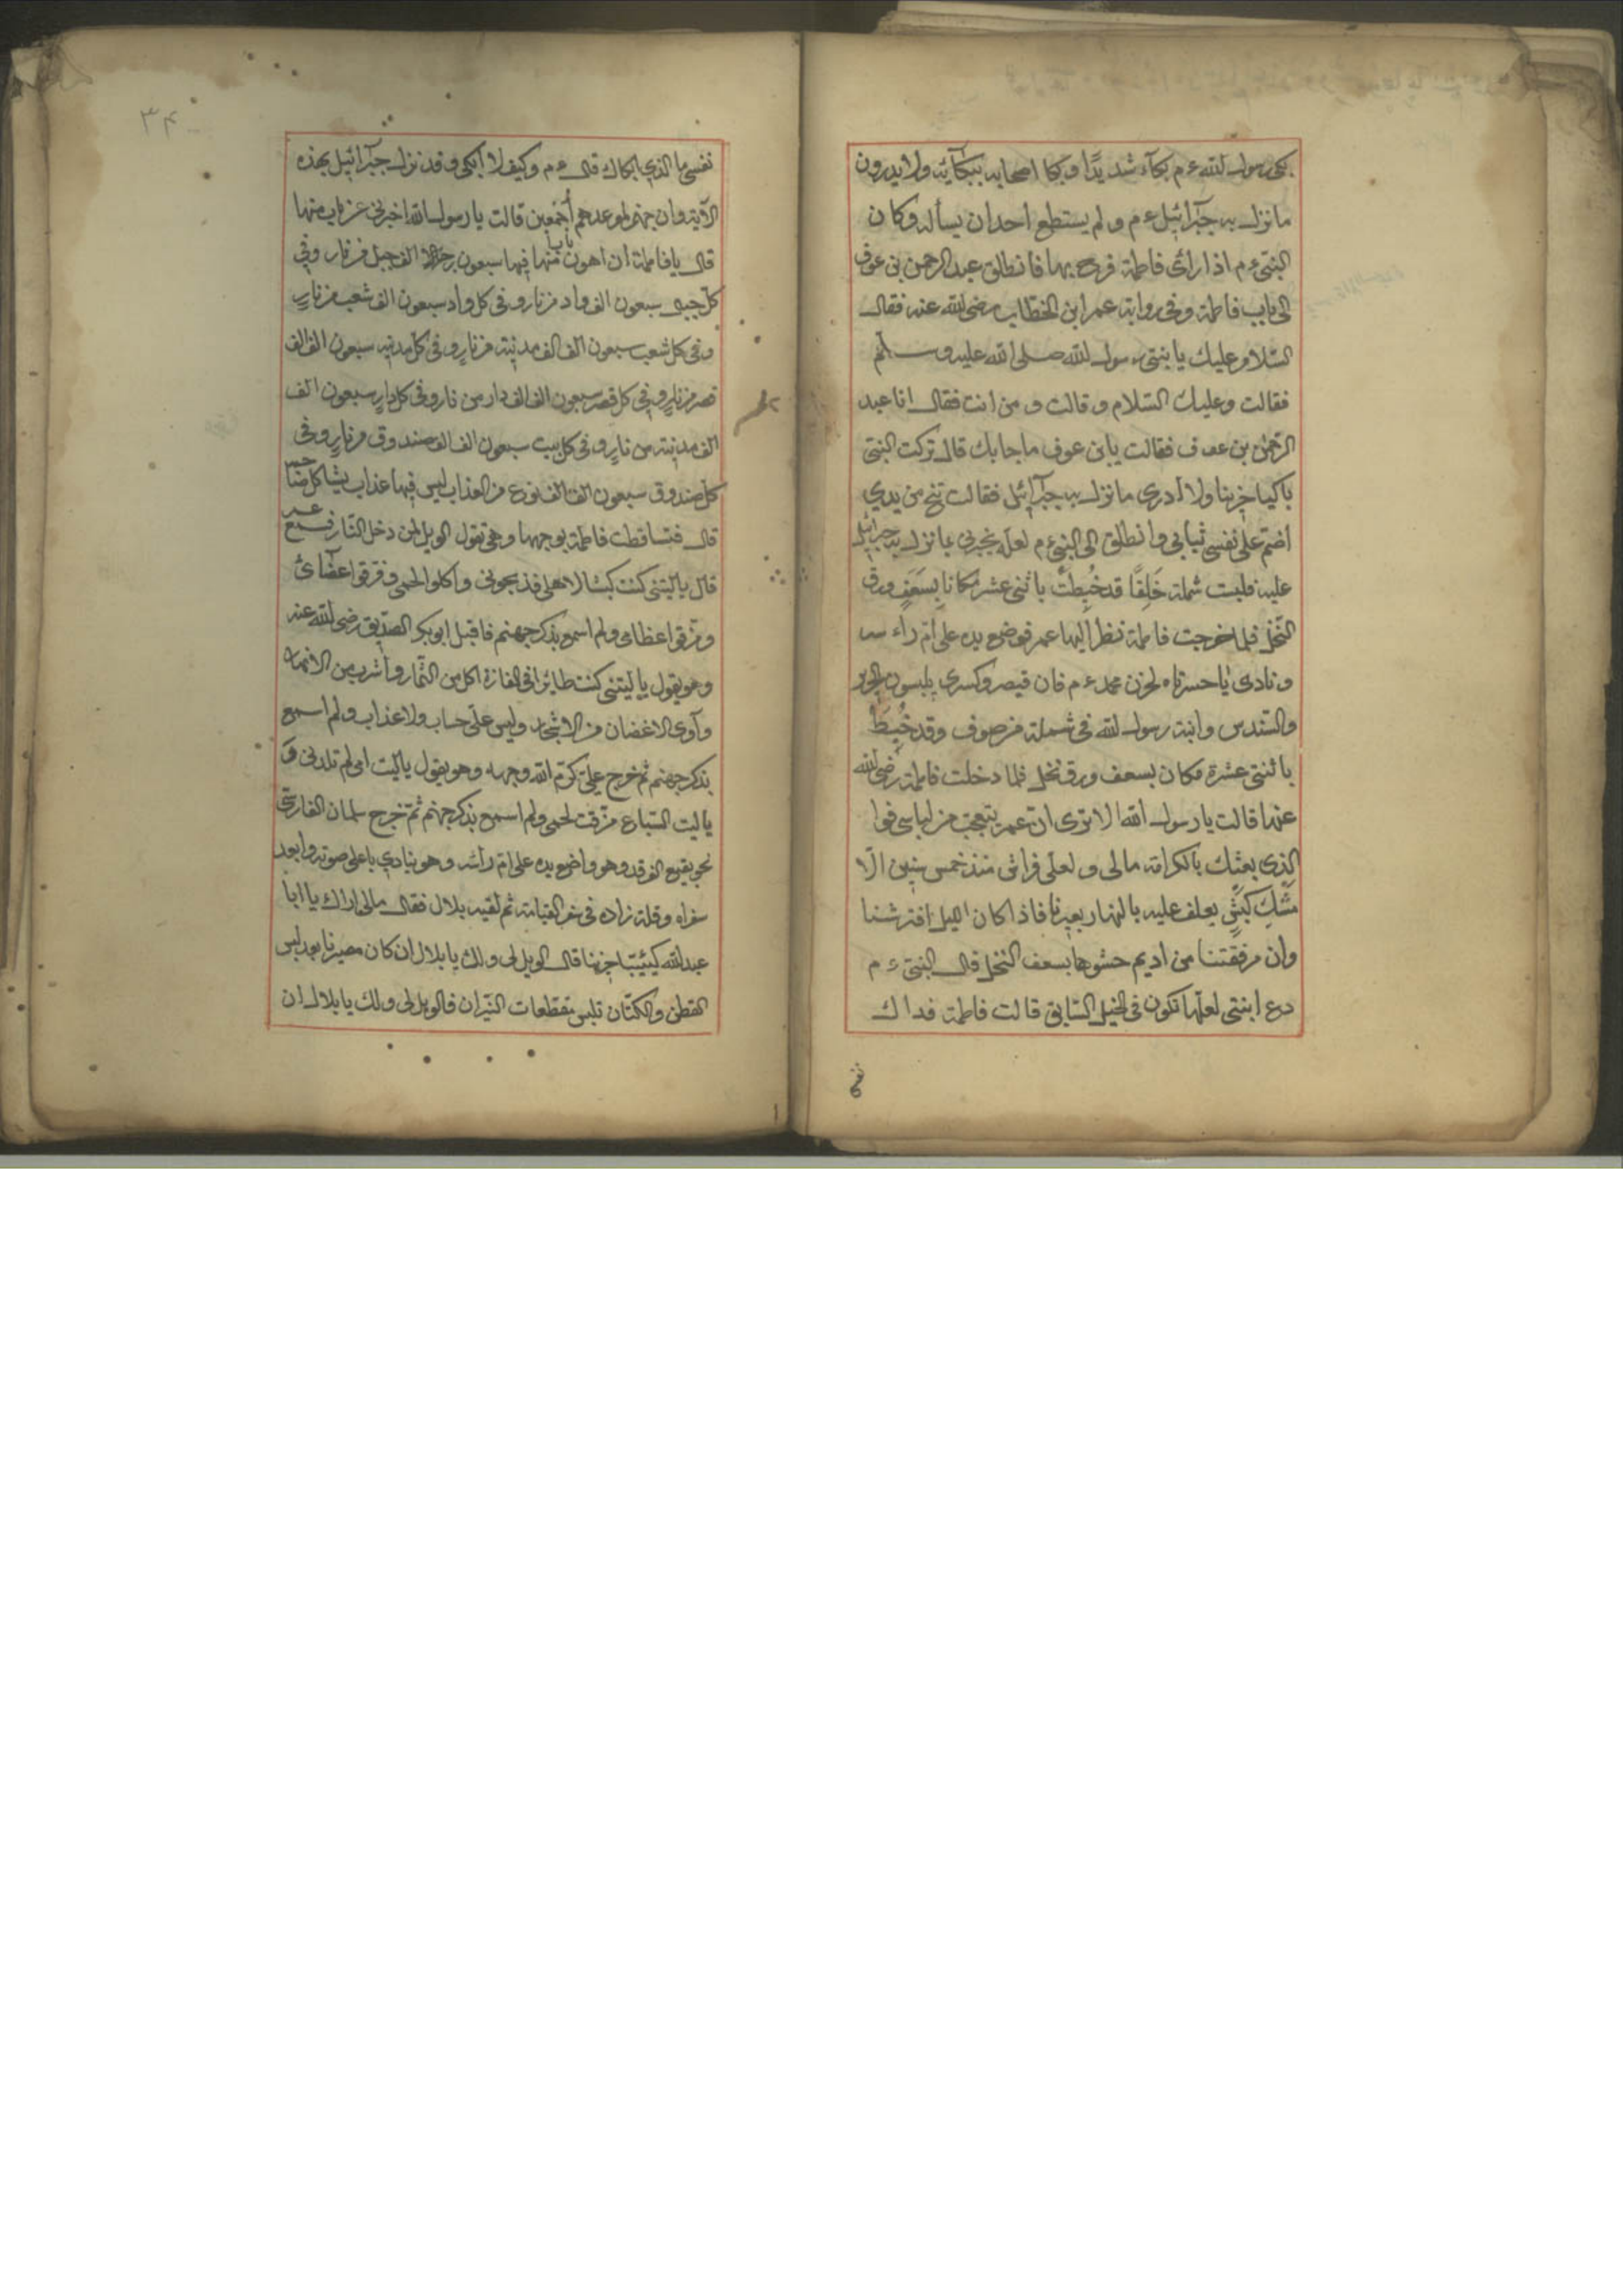 بكى رسول الله ءم بكآء شديدًا و بكا اصحابه ببكآئه ولا يدرون
ما نزل به جبرآئيل ءم و لم يستطع احدان يسأله وكان
النبى ءم اذا راى فاطمة فرح بها فانطلق عبد الرحمن بن عوف
الى باب فاطمة وفى رواية عمر ابن الخطاب رضى الله عنه فقال
السّلام عليك يا بنتى رسول الله صلى الله عليه وسلّم
فقالت وعليك السّلام و قالت و من انت فقال انا عبد
الرّحمن بن عوف فقالت يابن عوف ما جابك قال تركت النبى
باكيا حزينا ولا ادرى ما نزل به جبرآئيل فقالت تنح من يدي
اضمّ على نفسى ثيابى وانطلق الى النبى ءم لعلّه يخبرنى بما نزل به جبرائيل
عليه فلبست شملة خَلِقًا قد خُيِطَتْ باثنى عشر مكانا بِسَعَفِ ورق
النّخل فلما خرجت فاطمة نظر اليها عمر فوضع يده على امّ راءسه
و نادى يا حسرتاه لحزن محمد ءم فان قيصر وكسرى يلبسون الحرير
والسّندس وابنة رسول الله فى شملة من صوف وقد خُيِطَ
باثنتى عشرة مكان بسعف ورق نخل فلما دخلت فاطمة رضى الله
عنها قالت يا رسول الله الا ترى ان عمر يتعجب من لباسى فوا
لّذى بعثك بالكرامة مالى و لعلى فراش منذ خمس سنين الّا
مَسْكَ كَبْشٍ يعلف عليه بالنهار بعيرنا فاذا كان الليل افترشنا
وان مرفقتنا من اديم حشوها بسعف النخل قال النبى ءم
دع ابنتى لعلّها تكون فى الخيل السّابق قالت فاطمة فداك
نفسى ما الذي ابكاك قال ءم وكيف لا ابكى وقد نزل جبرآئيل بهذه
الآية وان جهنم لموعدهم أجمعين قالت يا رسول الله اخبرنى عن باب منها
قال يا فاطمة ان اهون بابا منها فيها سبعون الف جبل من نار وفى
كلّ جبل سبعون الف واد من نار وفى كل واد سبعون الف شعب من نار
وفى كل شعب سبعون الف الف مدينة من نار وفى كلّ مدينه سبعون الف الف
قصر من نار وفى كل قصر سبعون الف الف دار من نار وفى كل دار سبعون الف
الف مدينة من نار وفى كل بيت سبعون الف الف صندوق من نار وفى
كل صندوق سبعون الف الف نوع من العذاب ليس فيها عذاب يشاكل صاحبه
قال فتساقطت فاطمة بوجهها وهى تقول الويل لمن دخل النّار فسمع عمر
قال ياليتنى كنت كبشا لاهلى فذبحونى واكلوا لحمى وفرّقوا اعضآئى
ومزّقوا عظامى ولم اسمع بذكر جهنم فاقبل ابو بكر الصدّيق رضى الله عنه
وهو يقول ياليتنى كنت طائرا فى المفازة اكل من الثّمار واشرب من الانهار
وآوى الاغضان من الاشجار وليس علىّ حساب ولا عذاب ولم اسمع
بذكر جهنم ثم خرج علىّ كرّم الله وجهه وهو يقول ياليت امى لم تلدنى وَ
ياليت السّباع مزّقت لحمى ولم اسمع بذكر جهنم ثمّ خرج سلمان الفارسى
نحو بقيع الغرقد وهو واضع يده على امّ رأسه وهو ينادي باعلى صوته وابعد
سفراه وقلة زاده فى سفر القيامة ثم لقيه بلال فقال مالى اراك يا ابا
عبد الله كئيبًا حزينا قال الويل لى ولك يا بلال ان كان مصيرنا بعد لبس
القطن والكتّان نلبس مقطعات النّيران فالويل لى ولك يا بلال ان